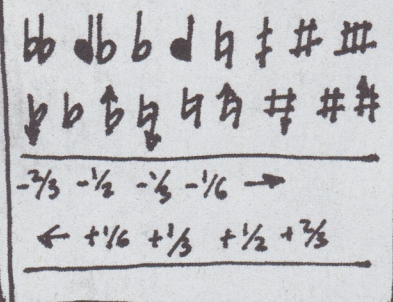 𝄫 𝄳♭ ♭ 𝄳 ♮ 𝄲 ♯ 𝄰♯
𝄭 ♭ 𝄬 𝄯 ♮ 𝄮 𝄱 ♯ 𝄰
-2/3 -1/2 -1/3 -1/6 →
← +1/6 +1/3 +1/2 +2/3